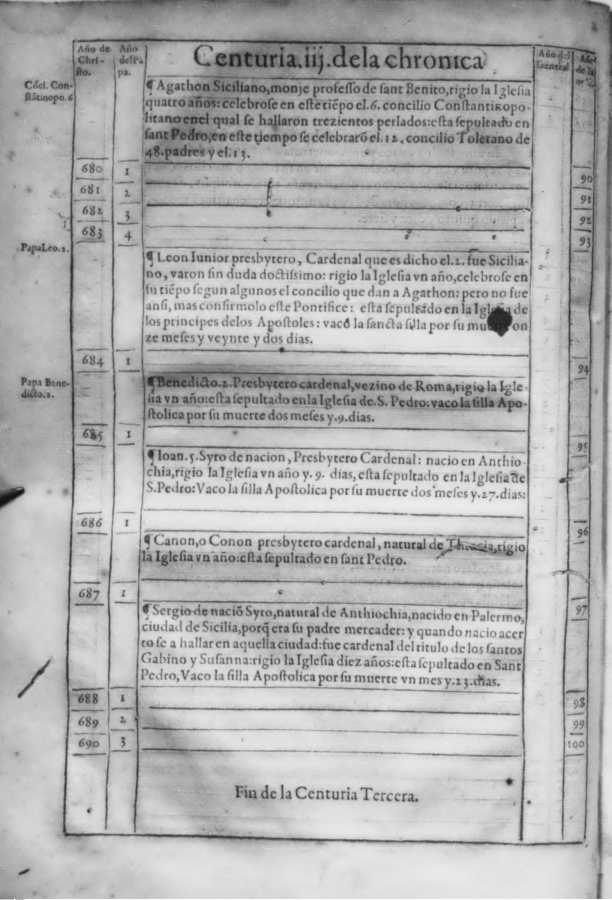 Año de Christo.
Año del Papa.
Centuria.iij.dela chronica
Año del General
Cōci. Constātinopo. 6
¶ Agathon Siciliano, monje professo de sant Benito, rigio la Iglesia
quatro años: celebrose en este tiēpo el.6. concilio Constantinopolitano
enel qual se hallaron trezientos perlados: esta sepultado en
sant Pedro, en este tiempo se celebrarō el.12. concilio Toletano de
48. padres y el.13.
680 1 90
681 2 91
682 3 92
683 4 93
Papa Leo. 2.
¶ Leon Iunior presbytero, Cardenal que es dicho el.2. fue Siciliano,
varon sin duda doctissimo: rigio la Iglesia vn año, celebrose en
su tiēpo segun algunos el concilio que dan a Agathon: pero no fue
ansi, mas confirmolo este Pontifice: esta sepultado en la Iglesia de
los principes delos Apostoles: vacó la sancta silla por su on
ze meses y veynte y dos dias.
684 1 94
Papa Benedicto.2.
¶ Benedicto.2. Presbytero cardenal, vezino de Roma, rigio la Iglesia
vn año: esta sepultado enla Iglesia de.S. Pedro: vaco la silla Apostolica
por su muerte dos meses y.9. dias.
685 1 95
¶ Ioan.5. Syro de nacion, Presbytero Cardenal: nacio en Anthiochia,
rigio la Iglesia vn año y.9. dias, esta sepultado en la Iglesia de
S.Pedro: Vaco la silla Apostolica por su muerte dos meses y.27. dias:
686 1 96
¶ Canon, o Conon presbytero cardenal, natural de Thracia, rigio
la Iglesia vn año: esta sepultado en sant Pedro.
687 1 97
¶ Sergio de nació Syro, natural de Anthiochia, nacido en Palermo,
ciudad de Sicilia, porq̄ era su padre mercader: y quando nacio acer
to se a hallar en aquella ciudad: fue cardenal del titulo de los santos
Gabino y Susanna: rigio la Iglesia diez años: esta sepultado en Sant
Pedro, Vaco la silla Apostolica por su muerte vn mes y.23. dias.
688 1 98
689 2 99
690 3 100
Fin de la Centuria Tercera.